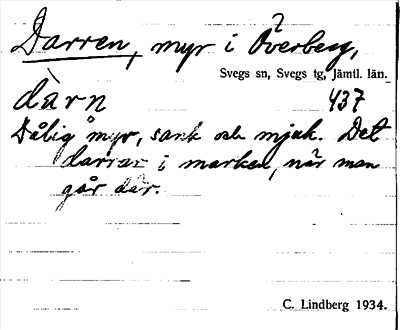 Darren, myr i Överberg,
Svegs sn, Svegs tg, Jämtl. län.
dàrn 437
Dålig myr, sank och mjuk. Det
darrar i marken, när man
går där.
C. Lindberg 1934.